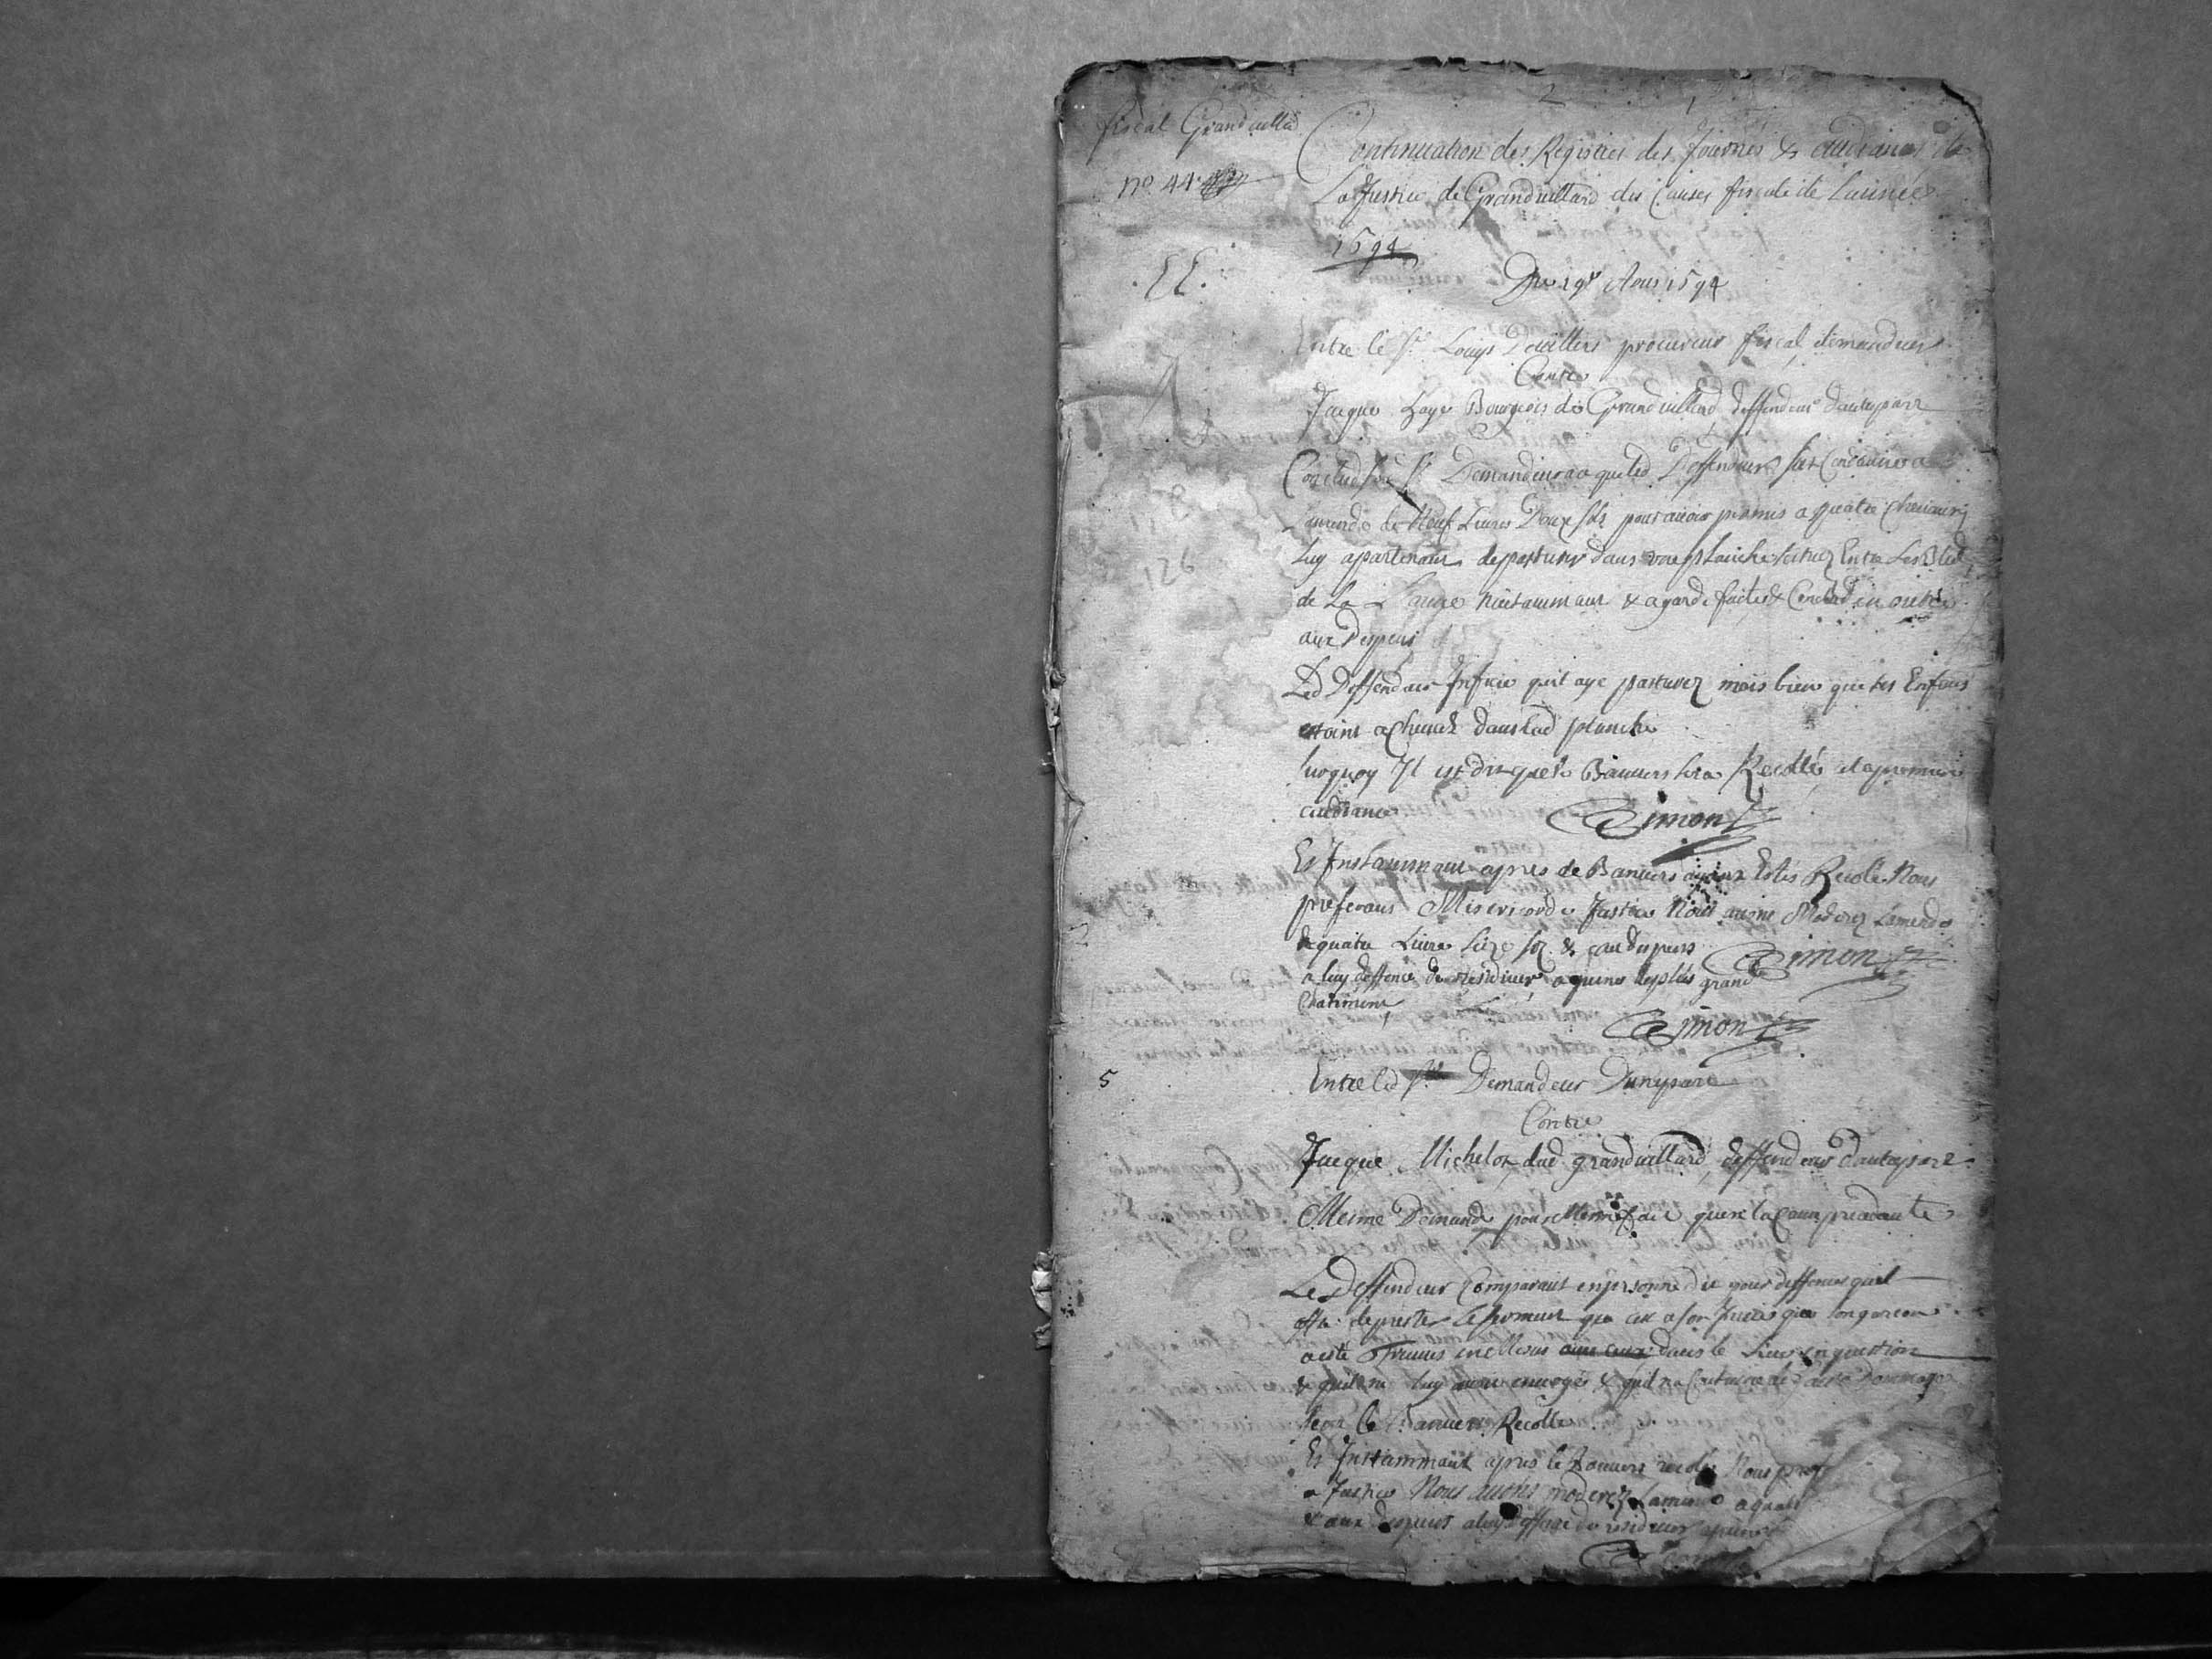 fiscal Grandvillard
n° 44
Continuation des Registres des Journés & audiances de
La Justice de Grandvillard des Causes fiscale de Lannée
1694
Du 19e Aous 1694
Entre le Sr Louys Devillers procureur fiscal, demandeur
Contre
Jacque Haye Bourgeois de Grandvillard deffendeur dautrepart
Conclud led Sr Demandeur a que led Deffendeur soit Condamné a
Lamende de Neuf Livres Douze solz pour avoir permis a quatre Chevaux
Luy apartenant de pasturer dans une planche scituez Entre Les Bled
de La & a garde faite & Conclud en outre
aux Despens
Led Deffendeur qu'il aye pasturez mais bien que ses Enfans
estoint a Cheval dans lad planche
Surquoy Il est dit que le Banvers sera Recollé a la premiere
audiance
Simon
Et Instamment apres le Banvers ayant Estés Recolé Nous
preferans Misericorde a Justice Nous avons Moderez Lamende
a quatre Livre seize solz & aux despens
Simon
a luy deffence de residiver a peine de plus grand
Chatiment
Simon
5
Entre led Sr Demandeur Dunepart
Contre
Jacque Michelot dud grandvillard deffendeur dautrepart
Mesme Demande pour Mesme fait que en la Cause precedante
Le Deffendeur Comparant en personne dit pour deffences qu'il
offre de prester le serment que son garcon
a esté dans le Lieu en question
& qu'il ne Luy avoit envoyés & qu'il na Coutume de faire Dommage
Sera le Banvers Recollé
Et Instammant apres le Banvers recolé Nous pref
a Justice Nous avons moderez Lamende a quatre
& aux Despens a luy deffence de residiver a peine